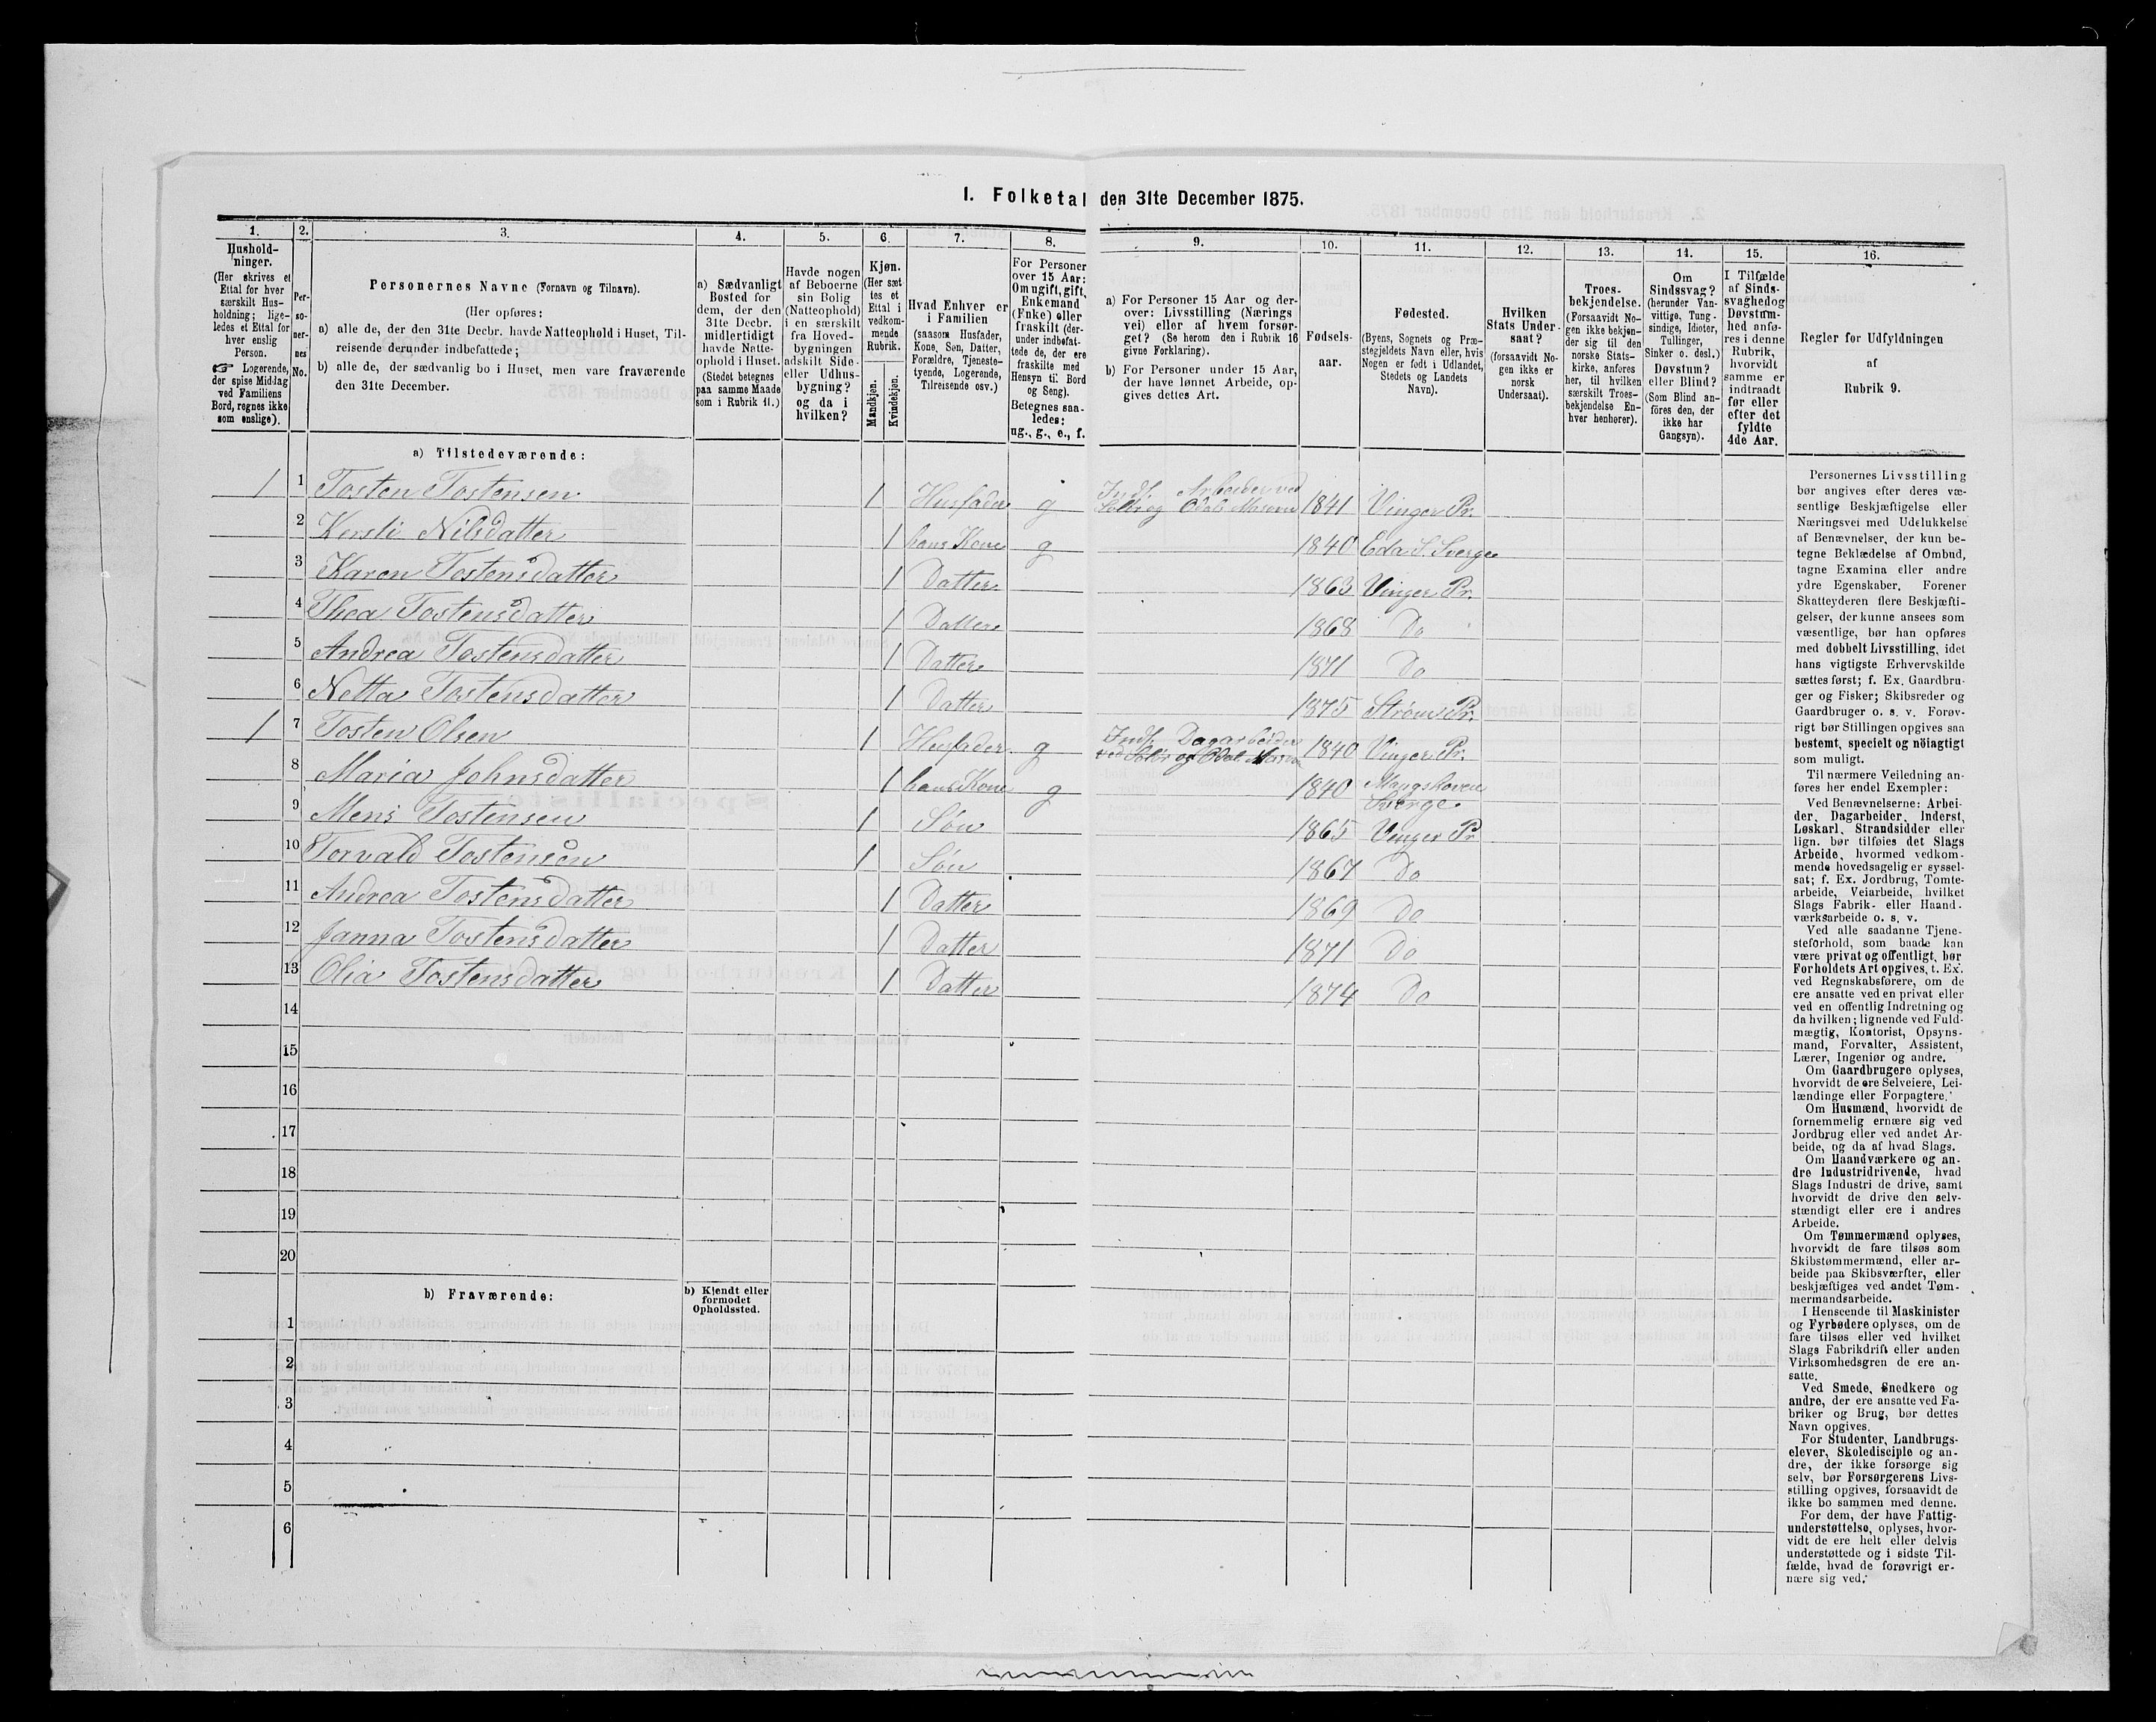 I. Folketal den 31te December 1875.
1.
2.
3.
4.
5.
6.
7.
8.
9.
10.
11.
12.
13.
14.
15.
16.
Hushold-
ninger.
(Her skrives et
Ettal for hver
særskilt Hus-
holdning; lige-
ledes et Ettal for
hver enslig
Person.
☞ Logerende,
der spise Middag
ved Familiens
Bord, regnes ikke
som enslige).
Per-
so-
ner-
nes
No.
Personernes Navne (Fornavn og Tilnavn).
(Her opføres:
a) alle de, der den 31te Decbr. havde Natteophold i Huset, Til-
reisende derunder indbefattede;
b) alle de, der sædvanlig bo i Huset, men vare fraværende
den 31te December.
a) Sædvanligt
Bosted for
dem, der den
31te Decbr.
midlertidigt
havde Natte-
ophold i Huset.
(Stedet betegnes
paa samme Maade
som i Rubrik 11.)
Havde nogen
af Beboerne
sin Bolig
(Natteophold)
i en særskilt
fra Hoved-
bygningen
adskilt Side-
eller Udhus-
bygning?
og da i
hvilken?
Kjøn.
(Her sæt
tes et
Ettal i
vedkom-
mende
Rubrik.
Mandkjøn.
Kvindekjøn.
Hvad Enhver er
i Familien
(saasom Husfader,
Kone, Søn, Datter,
Forældre, Tjeneste-
tyende, Logerende,
Tilreisende osv.)
For Personer
over 15 Aar:
Om ugift, gift,
Enkemand
(Enke) eller
fraskilt (der-
under indbefat-
tede de, der ere
fraskilte med
Hensyn til Bord
og Seng).
Betegnes saa-
ledes:
ug., g., e., f.
a) For Personer 15 Aar og der-
over: Livsstilling (Nærings
vei) eller af hvem forsør-
get? (Se herom den i Rubrik 16
givne Forklaring).
b) For Personer under 15 Aar,
der have lønnet Arbeide, op-
gives dettes Art.
Fødsels-
aar.
Fødested.
(Byens, Sognets og Præ-
stegjeldets Navn eller, hvis
Nogen er født i Udlandet,
Stedets og Landets
Navn).
Hvilken
Stats Under-
saat?
(forsaavidt No-
gen ikke er
norsk
Undersaat).
Troes-
bekjendelse.
(Forsaavidt No-
gen ikke bekjen-
der sig til den
norske Stats-
kirke, anføres
her, til hvilken
særskilt Troes-
bekjendelse En-
hver henhører).
Om
Sindssvag?
(herunder Van-
vittige, Tung-
sindige, Idioter,
Tullinger,
Sinker o. desl.)
Døvstum?
eller Blind?
(Som Blind an-
føres den, der
ikke har
Gangsyn).
I Tilfælde
af Sinds-
svaghed og
Døvstum-
hed anfø-
res i denne
Rubrik,
hvorvidt
samme er
indtraadt
før eller
efter det
fyldte
4de Aar.
Regler for Udfyldningen
af
Rubrik 9.
a) Tilstedeværende:
1 1 Tosten Tostensen 1 Husfader g Indr. Arbeider ved
Solør og Odals Masovn 1841 Vinger Pr.
2 Kersti Nilsdatter 1 hans Kone g 1840 Eda S Sverge
3 Karen Tostensdatter 1 Datter 1863 Vinger Pr.
4 Thea Tostensdatter 1 Datter 1868 Do
5 Andrea Tostensdatter 1 Datter 1871 Do
6 Netta Tostensdatter 1 Datter 1875 Strøm Pr.
1 7 Tosten Olsen 1 Husfader g Indr. Dagarbeider
ved Solør og Odal Masovn 1840 Vinger Pr.
8 Maria Johnsdatter 1 hans Kone g 1840 Mangskoven
Sverge.
9 Mens Tostensen 1 Søn 1865 Vinger Pr
10 Torvald Tostensen 1 Søn 1867 Do
11 Andrea Tostensdatter 1 Datter 1869 Do
12 Janna Tostensdatter 1 Datter 1871 Do
13 Olia Tostensdatter 1 Datter 1874 Do
14
15
16
17
18
19
20
b) Fraværende:
b) Kjendt eller
formodet
Opholdssted.
1
2
3
4
5
6
Personernes Livsstilling
bør angives efter deres væ-
sentlige Beskjæftigelse eller
Næringsvei med Udelukkelse
af Benævnelser, der kun be-
tegne Beklædelse af Ombud,
tagne Examina eller andre
ydre Egenskaber. Forener
Skatteyderen flere Beskjæfti-
gelser, der kunne ansees som
væsentlige, bør han opføres
med dobbelt Livsstilling, idet
hans vigtigste Erhvervskilde
sættes først; f. Ex. Gaardbru-
ger og Fisker; Skibsreder og
Gaardbruger o. s. v. Forøv-
rigt bør Stillingen opgives saa
bestemt, specielt og nöiagtigt
som muligt.
Til nærmere Veiledning an-
føres her endel Exempler:
Ved Benævnelserne: Arbei-
der, Dagarbeider, Inderst,
Løskarl, Strandsidder eller
lign. bør tilføies det Slags
Arbeide, hvormed vedkom-
mende hovedsagelig er syssel-
sat; f. Ex. Jordbrug, Tomte-
arbeide, Veiarbeide, hvilket
Slags Fabrik- eller Haand-
værksarbeide o. s. v.
Ved alle saadanne Tjene-
steforhold, som baade kan
være privat og offentligt, bør
Forholdets Art opgives, t. Ex.
ved Regnskabsførere, om de
ere ansatte ved en privat eller
ved en offentlig Indretning og
da hvilken; lignende ved Fuld-
mægtig, Kontorist, Opsyns-
mand, Forvalter, Assistent,
Lærer, Ingeniør og andre.
Om Gaardbrugere oplyses,
hvorvidt de ere Selveiere, Lei-
lændinge eller Forpagtere.
Om Husmænd, hvorvidt de
fornemmelig ernære sig ved
Jordbrug eller ved andet Ar-
beide, og da af hvad Slags.
Om Haandværkere og an-
dre Industridrivende, hvad
Slags Industri de drive, samt
hvorvidt de drive den selv-
stændigt eller ere i andres
Arbeide.
Om Tømmermænd oplyses,
hvorvidt de fare tilsøs som
Skibstømmermænd, eller ar-
beide paa Skibsværfter, eller
beskjæftiges ved andet Tøm-
mermandsarbeide.
I Henseende til Maskinister
og Fyrbødere oplyses, om de
fare tilsøs eller ved hvilket
Slags Fabrikdrift eller anden
Virksomhedsgren de ere an-
satte.
Ved Smede, Snedkere og
andre, der ere ansatte ved Fa-
briker og Brug, bør dettes
Navn opgives.
For Studenter, Landbrugs-
elever, Skoledisciple og an-
dre, der ikke forsørge sig
selv, bør Forsørgerens Livs-
stilling opgives, forsaavidt de
ikke bo sammen med denne.
For dem, der have Fattig-
understøttelse, oplyses, hvor-
vidt de ere helt eller delvis
understøttede og i sidste Til-
fælde, hvad de forøvrigt er-
nære sig ved.